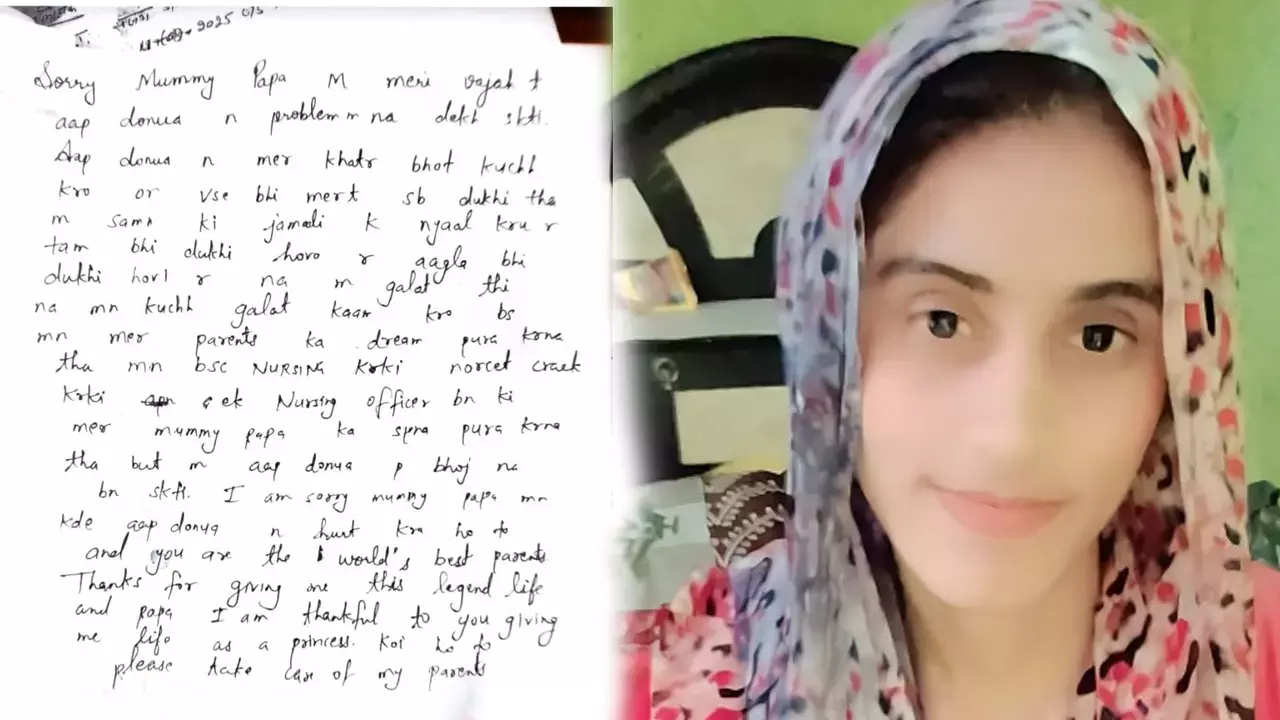 2025
Sorry Mummy Papa M meri vajah t
aap donua n problem m na dekh skti.
Aap donua n mer khatr bhot kuchh
kro or vse bhi mert sb dukhi tha
m sama ki jamadi k nyaal kru r
tam bhi dukhi hovo r aagla bhi
dukhi horl r na m galat thi
na mn kuchh galat kaam kro bs
mn mer parents ka dream pura krna
tha mn bsc NURSING krki norcet crack
krki ek Nursing officer bn ki
mer mummy papa ka spna pura krna
tha but m aap donua p bhoj na
bn skti. I am sorry mummy papa mn
kde aap donua n hurt kra ho to
and you are the world's best parents
Thanks for giving me this legend life
and papa I am thankful to you giving
me life as a princess. Koi ho to
please take care of my parents